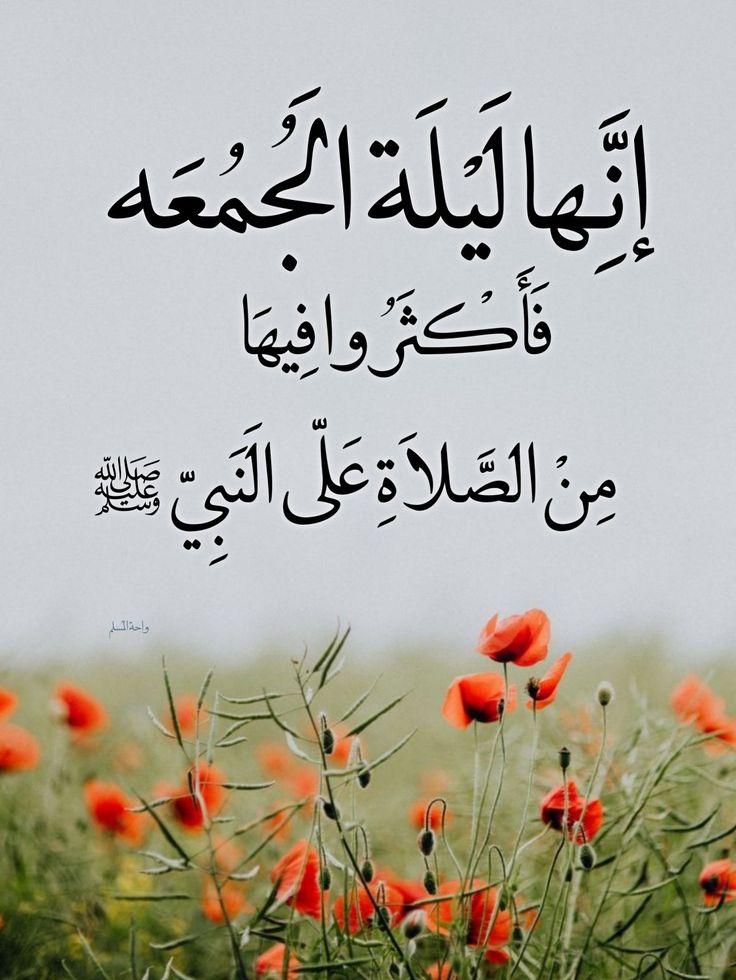 إِنَّها لَيْلَة الجُمُعَه
فَأَكْثَرُوا فِيهَا
مِنْ الصَّلاَةِ عَلَى النَبِيِّ ﷺ
واحة المسلم